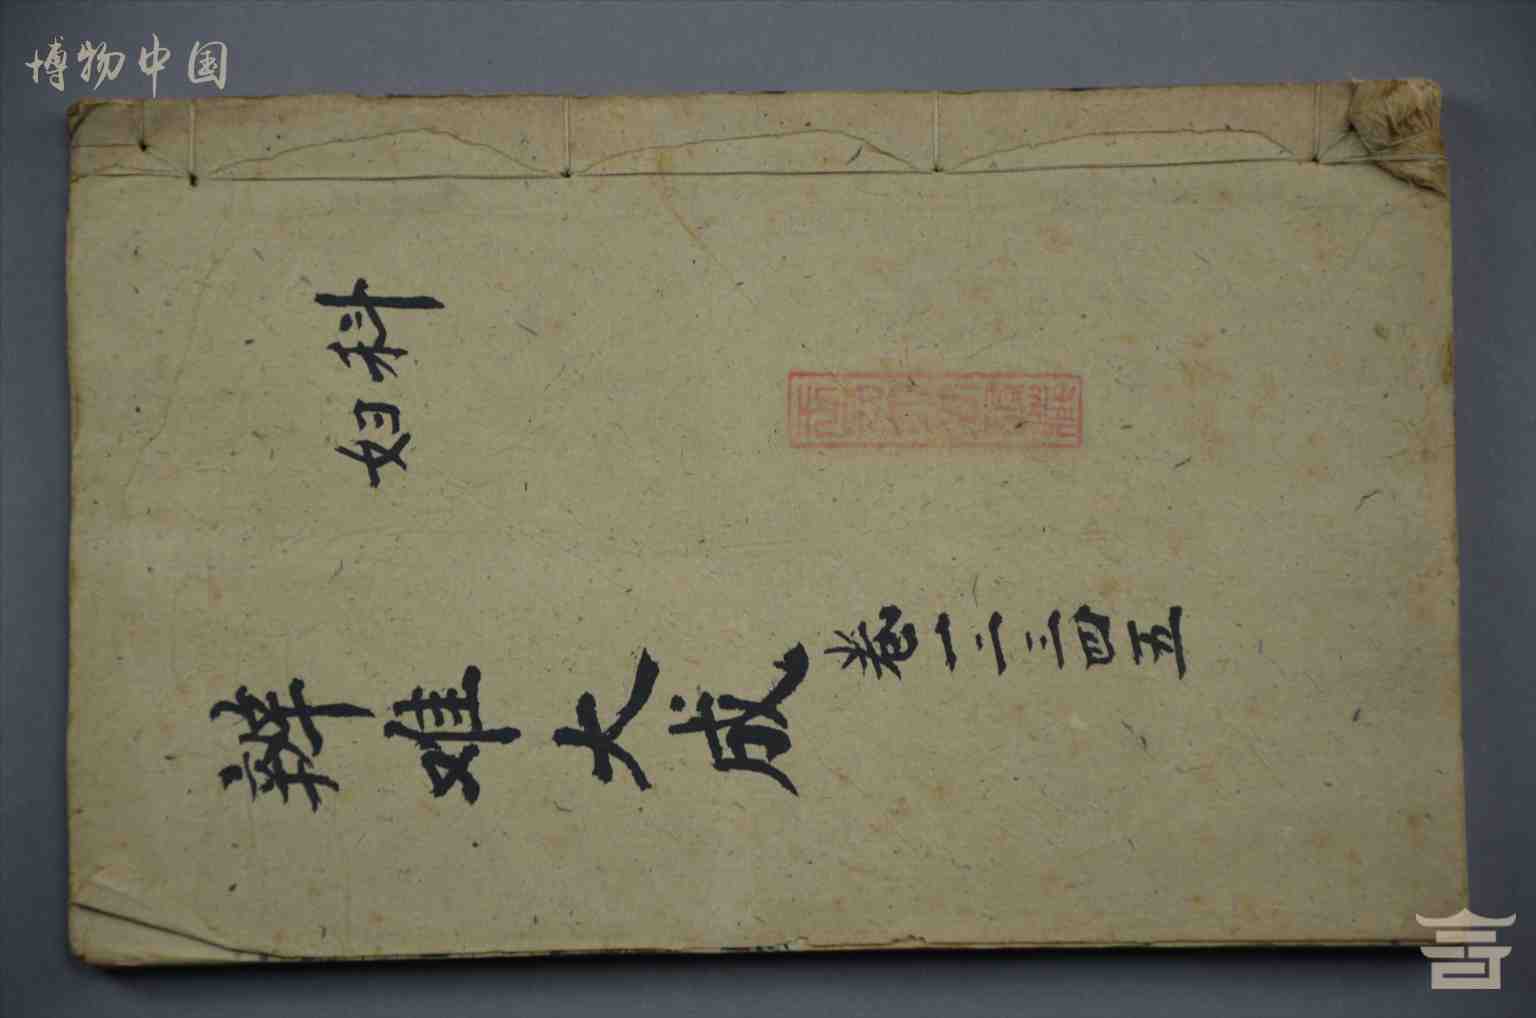 博物中国
妇科
辨难大成
卷一二三四五